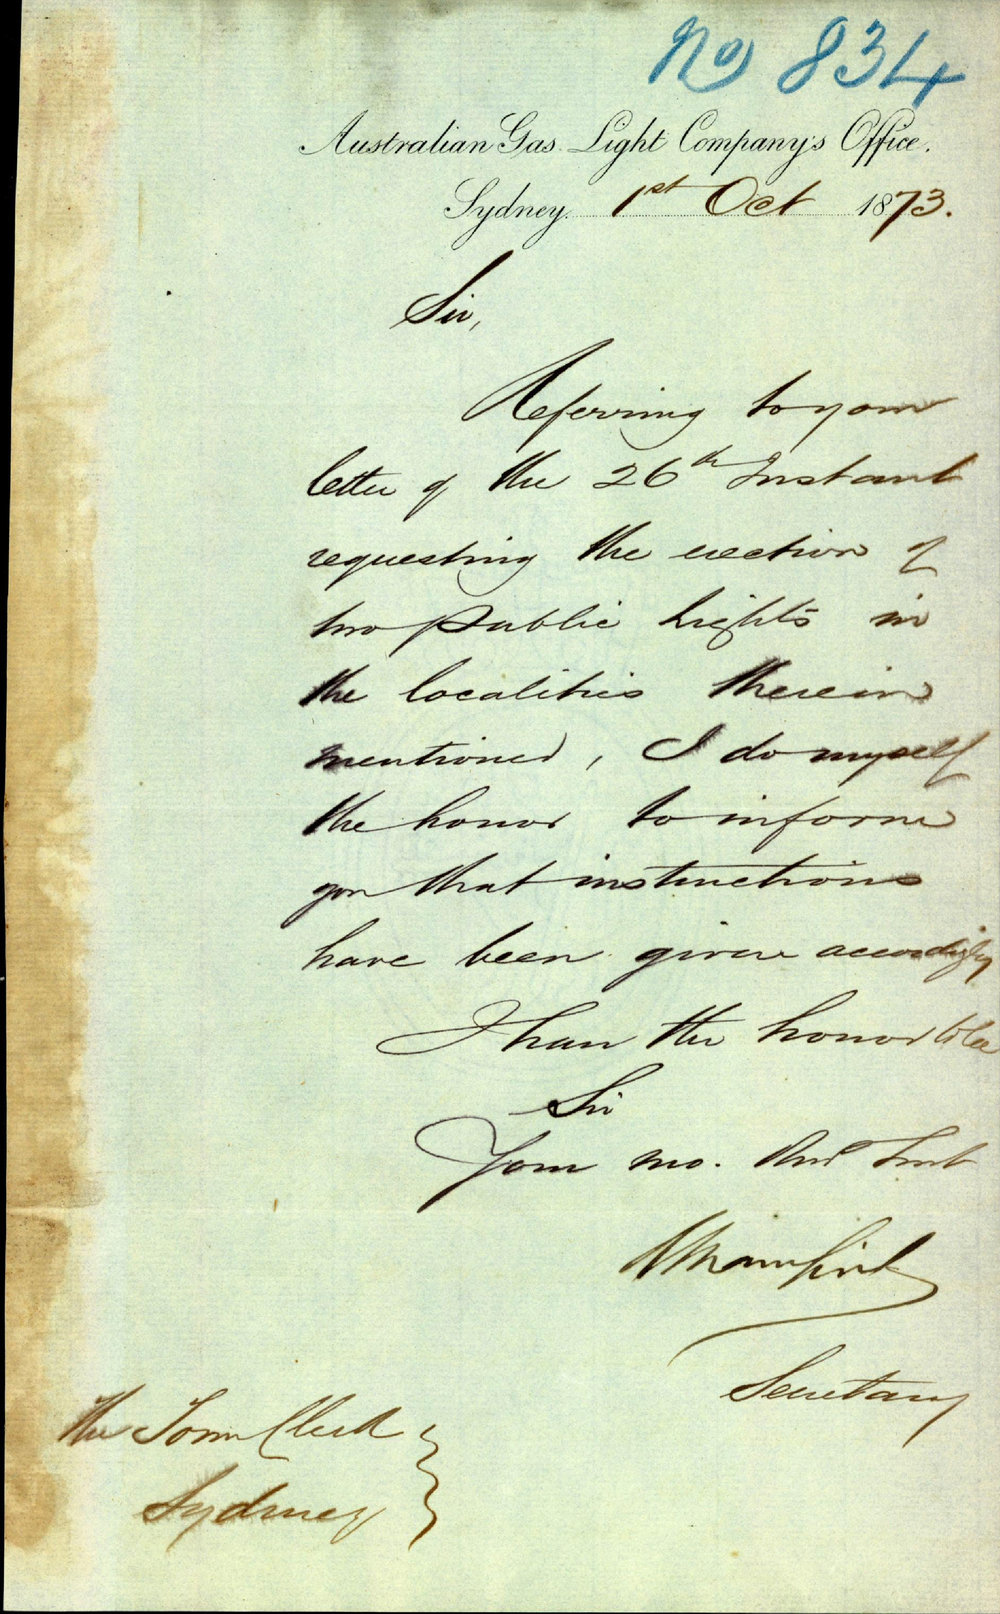 No 834
Australian Gas Light Company's Office.
Sydney 1st Oct 1873.
Sir,
Referring to your
letter of the 26th Instant
requesting the erection of
two Public Lights in
the localities therein
mentioned, I do myself
the honor to inform
you that instructions
have been given accordingly
I have the honor to be
Sir
Your mo. Obd Servt
Secretary
The Town Clerk
Sydney